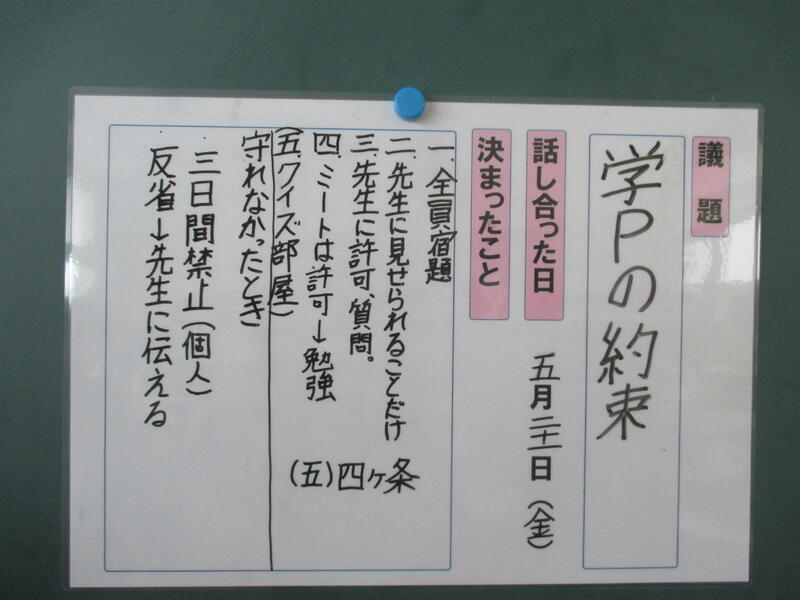 議題
学Pの約束
話し合った日
五月二十一日(金)
決まったこと
一、全員、宿題
二、先生に見せられることだけ
三、先生に許可、質問。
四、ミートは許可→勉強
(五、クイズ部屋)
(五)四ヶ条
守れなかったとき
三日間禁止(個人)
反省→先生に伝える